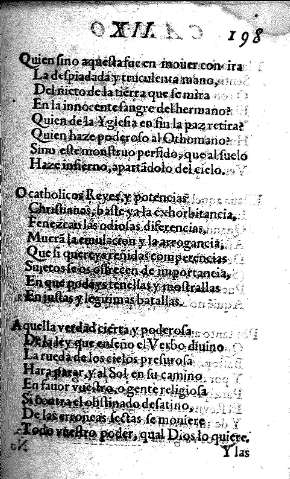 CANTO
198
Quien sino aquesta fue en mouer con ira
La despiadada y truculenta mano,
Del nieto de la tierra que se mira
En la innocente sangre del hermano?
Quien de la Yglesia en fin la paz retira?
Quien haze poderoso al Othomano?
Sino este monstruo perfido, que al suelo
Haze infierno, apartádolo del cielo.
O catholicos Reyes, y potencias
Christianas, baste ya la exhorbitancia,
Fenezcan las odiosas diferencias,
Muera la emulacion y la arrogancia,
Que si quereys reñidas competencias
Sujetos se os ofrecen de importancia,
En que podeys tenellas y mostrallas
En justas y legitimas batallas.
Aquella verdad cierta y poderosa
De la ley que enseño el Verbo diuino
La rueda de los cielos presurosa
Hara parar, y al Sol en su camino
En fauor vuestro, o gente religiosa
Si contra el obstinado desatino,
De las erroneas sectas se mouiere
Todo vuestro poder, qual Dios lo quiere.
Y las